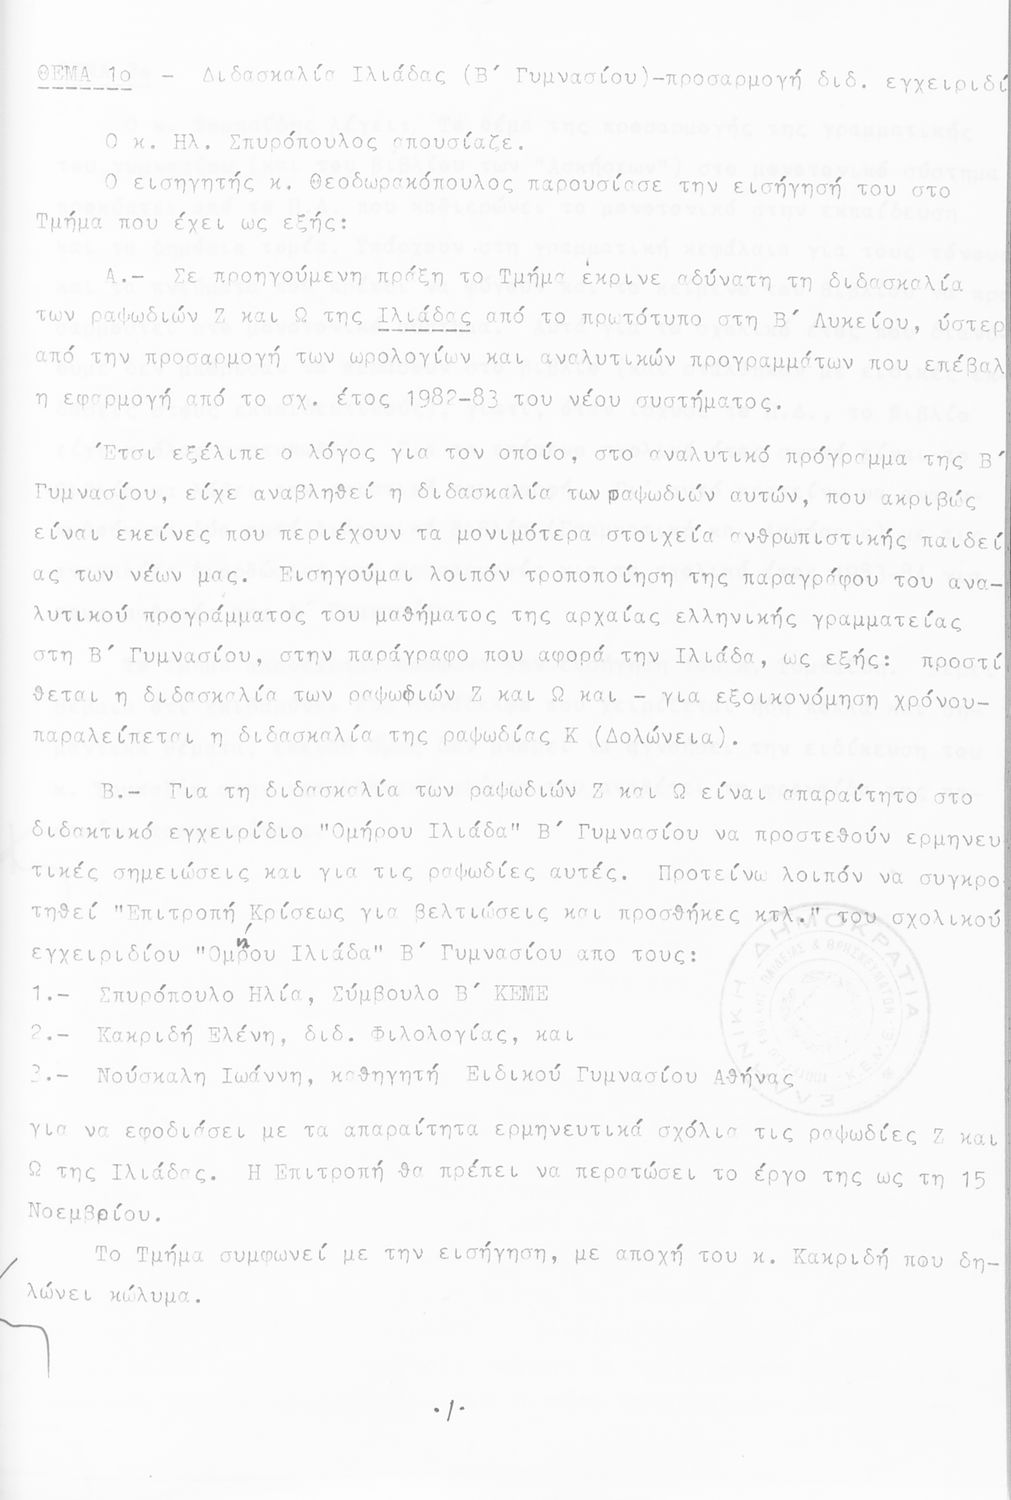 ΘΕΜΑ 1ο - Διδασκαλία Ιλιάδας (Β΄ Γυμνασίου)-προσαρμογή διδ. εγχειριδί
Ο κ. Ηλ. Σπυρόπουλος απουσίαζε.
Ο εισηγητής κ. Θεοδωρακόπουλος παρουσίασε την εισήγησή του στο
Τμήμα που έχει ως εξής:
Α.- Σε προηγούμενη πράξη το Τμήμα έκρινε αδύνατη τη διδασκαλία
των ραψωδιών Ζ και Ω της Ιλιάδας από το πρωτότυπο στη Β΄ Λυκείου, ύστερ
από την προσαρμογή των ωρολογίων και αναλυτικών προγραμμάτων που επέβαλ
η εφαρμογή από το σχ. έτος 1982-83 του νέου συστήματος.
Έτσι εξέλιπε ο λόγος για τον οποίο, στο αναλυτικό πρόγραμμα της Β΄
Γυμνασίου, είχε αναβληθεί η διδασκαλία των ραψωδιών αυτών, που ακριβώς
είναι εκείνες που περιέχουν τα μονιμότερα στοιχεία ανθρωπιστικής παιδεί
ας των νέων μας. Εισηγούμαι λοιπόν τροποποίηση της παραγράφου του ανα-
λυτικού προγράμματος του μαθήματος της αρχαίας ελληνικής γραμματείας
στη Β΄ Γυμνασίου, στην παράγραφο που αφορά την Ιλιάδα, ως εξής: προστί
θεται η διδασκαλία των ραψωδιών Ζ και Ω και - για εξοικονόμηση χρόνου-
παραλείπεται η διδασκαλία της ραψωδίας Κ (Δολώνεια).
Β.- Για τη διδασκαλία των ραψωδιών Ζ και Ω είναι απαραίτητο στο
διδακτικό εγχειρίδιο "Ομήρου Ιλιάδα" Β΄ Γυμνασίου να προστεθούν ερμηνευ
τικές σημειώσεις και για τις ραψωδίες αυτές. Προτείνω λοιπόν να συγκρο
τηθεί "Επιτροπή Κρίσεως για βελτιώσεις και προσθήκες κτλ." του σχολικού
εγχειριδίου "Ομήρου Ιλιάδα" Β΄ Γυμνασίου απο τους:
1.- Σπυρόπουλο Ηλία, Σύμβουλο Β΄ ΚΕΜΕ
2.- Κακριδή Ελένη, διδ. Φιλολογίας, και
3.- Νούσκαλη Ιωάννη, καθηγητή Ειδικού Γυμνασίου Αθήνας
για να εφοδιάσει με τα απαραίτητα ερμηνευτικά σχόλια τις ραψωδίες Ζ και
Ω της Ιλιάδας. Η Επιτροπή θα πρέπει να περατώσει το έργο της ως τη 15
Νοεμβρίου.
Το Τμήμα συμφωνεί με την εισήγηση, με αποχή του κ. Κακριδή που δη-
λώνει κώλυμα.
./.
ΕΛΛΗΝΙΚΗ ΔΗΜΟΚΡΑΤΙΑ